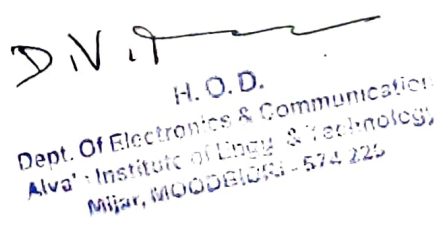 D.V.
H. O. D.
Dept. Of Electronics & Communication
Alva's Institute of Engg. & Technology
Mijar, MOODBIDRI - 574 225